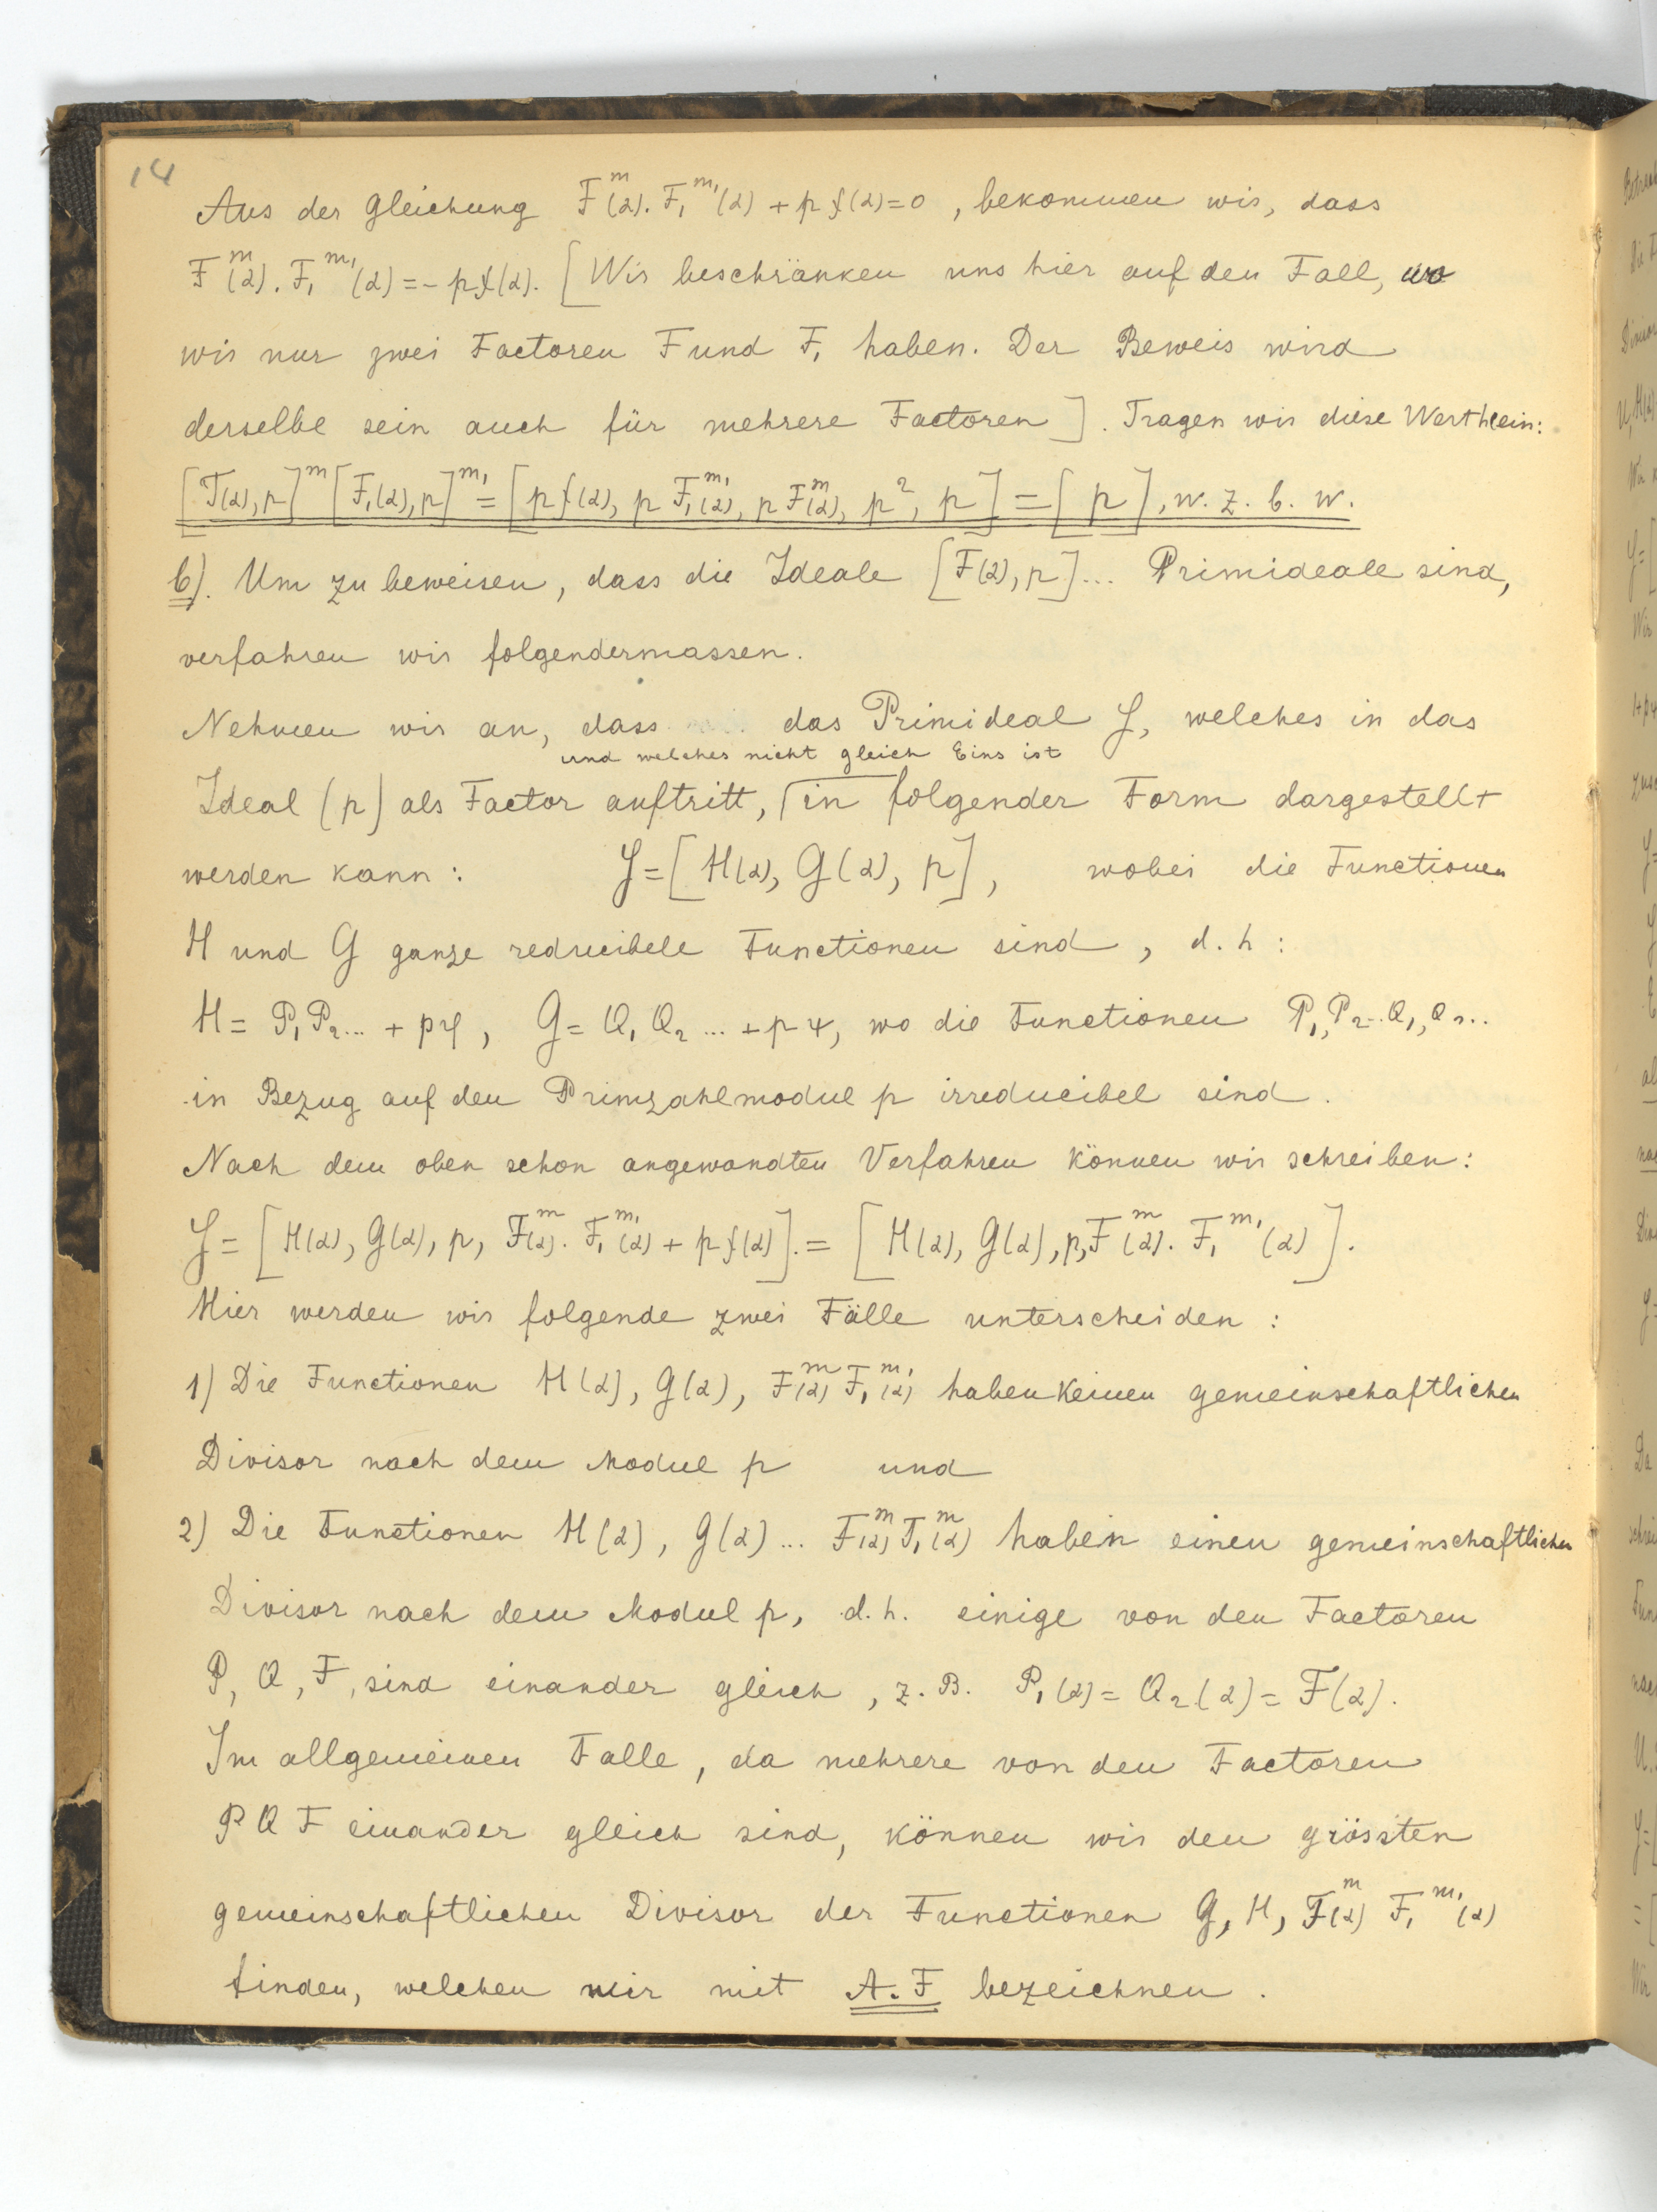 14
Aus der Gleichung F^m(α). F₁^m₁(α) + p f(α) = 0, bekommen wir, dass
F^m(α). F₁^m₁(α) = - p f(α). [Wir beschränken uns hier auf den Fall, wo
wir nur zwei Factoren F und F₁ haben. Der Beweis wird
derselbe sein auch für mehrere Factoren]. Tragen wir diese Werthe ein:
[F(α), p]^m [F₁(α), p]^m₁ = [p f(α), p F₁^m₁(α), p F^m(α), p², p] = [p], w. z. b. w.
b). Um zu beweisen, dass die Ideale [F(α), p]... Primideale sind,
verfahren wir folgendermassen.
Nehmen wir an, dass das Primideal J, welches in das
und welches nicht gleich Eins ist
Ideal (p) als Factor auftritt, in folgender Form dargestellt
werden kann: J = [H(α), G(α), p], wobei die Functionen
H und G ganze reducibele Functionen sind, d. h:
H = P₁ P₂ ... + pφ, G = Q₁ Q₂ ... + pψ, wo die Functionen P₁, P₂.. Q₁, Q₂...
in Bezug auf den Primzahlmodul p irreducibel sind.
Nach dem oben schon angewandten Verfahren können wir schreiben:
J = [H(α), G(α), p, F^m(α). F₁^m₁(α) + p f(α)]. = [H(α), G(α), p, F^m(α). F₁^m₁(α)].
Hier werden wir folgende zwei Fälle unterscheiden:
1) Die Functionen H(α), G(α), F^m(α) F₁^m₁(α) haben keinen gemeinschaftlichen
Divisor nach dem Modul p und
2) Die Functionen H(α), G(α)... F^m(α) F₁^m(α) haben einen gemeinschaftlichen
Divisor nach dem Modul p, d. h. einige von den Factoren
P, Q, F, sind einander gleich, z. B. P₁(α) = Q₂(α) = F(α).
Im allgemeinen Falle, da mehrere von den Factoren
P Q F einander gleich sind, können wir den grössten
gemeinschaftlichen Divisor der Functionen G, H, F^m(α) F₁^m₁(α)
finden, welchen wir mit A. F bezeichnen.